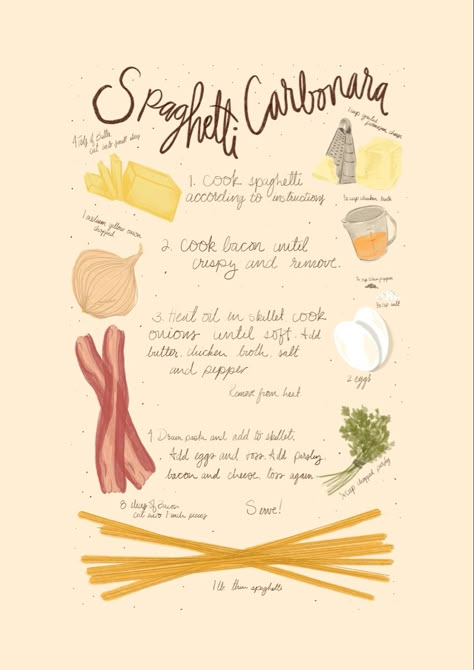 Spaghetti Carbonara
of Butter
cut into small
1 cup grated
parmesan cheese
1. Cook spaghetti
according to instructions
1 medium yellow onion
chopped
cup chicken broth
2. Cook bacon until
crispy and remove.
pepper
salt
3. Heat oil in skillet cook
onions until soft. Add
butter, chicken broth, salt
and pepper
Remove from heat
2 eggs
4 Drain pasta and add to skillet.
Add eggs and toss. Add parsley,
bacon and cheese, toss again
cup chopped parsley
8 slices of Bacon
cut into 1 inch pieces
Serve!
1 lb thin spaghetti